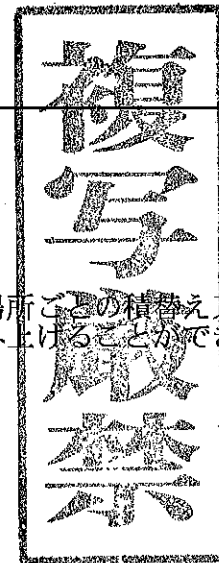 複写厳禁
場所ごとの積替え
上げることができ